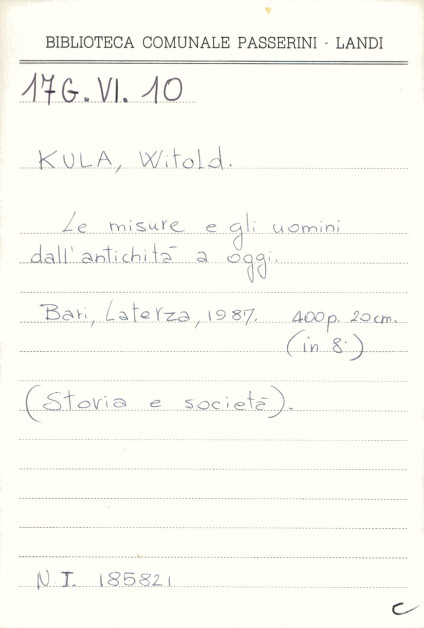 BIBLIOTECA COMUNALE PASSERINI - LANDI
17G. VI. 10
KULA, Witold.
Le misure e gli uomini
dall'antichità a oggi.
Bari, Laterza, 1987. 400p. 20cm.
(in 8.)
(Storia e società).
N.I. 185821
C